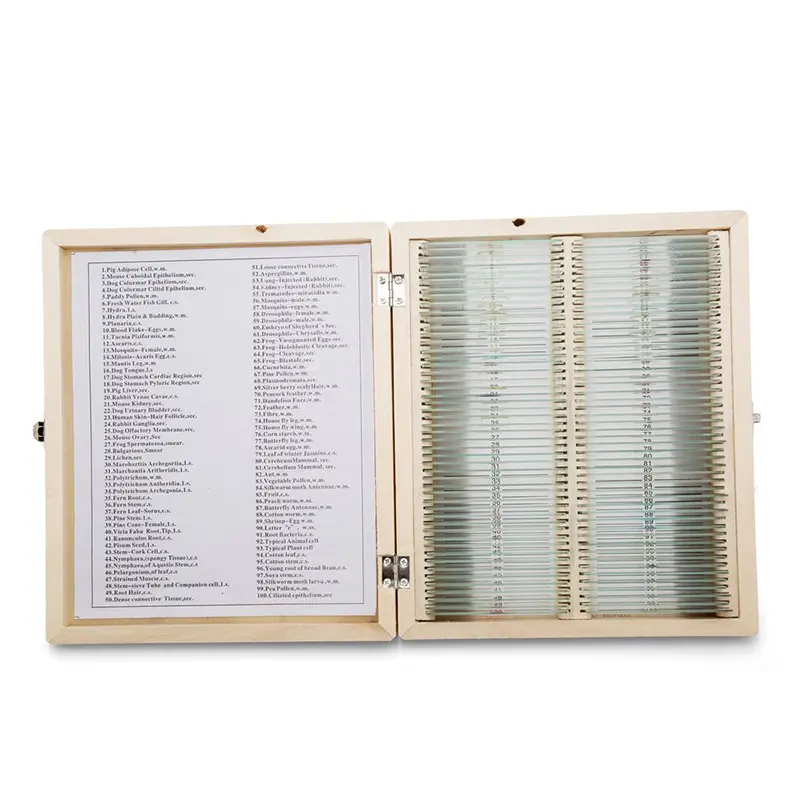 1.Pig Adipose Cell,w.m.
2.Mouse Cuboidal Epithelium,sec.
3.Dog Columnar Epithelium,sec.
4.Dog Columnar Cilitd Epihelium,sec.
5.Paddy Pollen,w.m.
6.Fresh Water Fish Gill, c.s.
7.Hydra,l.s.
8.Hydra Plain & Budding,w.m.
9.Planaria,c.s.
10.Blood Fluke-Eggs,w.m.
11.Taenia Pisiformis,w.m.
12.Ascaris,c.s.
13.Mosquito-Female,w.m.
14.Mitosis-Acaris Egg,c.s.
15.Mantis Leg,w.m
16.Dog Tongue,l.s
17.Dog Stomach Cardiac Region,sec
18.Dog Stomach Pyloric Region,sec
19.Pig Liver,sec.
20.Rabbit Venae Cavae,c.s.
21.Mouse Kidney,sec.
22.Dog Urinary Bladder,sec.
23.Human Skin-Hair Follicle,sec.
24.Rabbit Ganglia,sec.
25.Dog Olfactory Membrane,sec.
26.Mouse Ovary,Sec
27.Frog Spermatozoa,smear.
28.Bulgarious,Smear
29.Lichen,sec
30.Marohorttis Archegortia,l.s.
31.Marchantia Aritheridis,l.s.
32.Polytrichum,w.m.
33.Polytrichum Antheridia,l.s.
34.Polytrichum Archegonia,l.s.
35.Fern Root,c.s.
36.Fern Stem,c.s.
37.Fern Leaf-Sorus,c.s.
38.Pine Stem,l.s.
39.Pine Cone-Female,l.s.
40.Vicia Faba Root,Tip,l.s.
41.Ranunculus Root,c.s.
42.Pisum Seed,l.s.
43.Stem-Cork Cell,c.s.
44.Nymphaea,(spongy Tissur),c.s
45.Nymphaea,of Aqustio Stem,c.s
46.Pelargonium,of leaf,c.s
47.Strained Muscie,c.s.
48.Stem-sieve Tube and Companion cell,l.s.
49.Root Hair,c.s.
50.Dense connective Tissue,sec.
51.Loose connective Tissue,sec.
52.Aspergillus,w.m.
53.Lung-Injected (Rabbit),sec.
54.Kidney-Injected (Rabbit),sec.
55.Trematodes-miracidia w.m.
56.Mosquito-male,w.m.
57.Mosquito-eggs,w.m.
58.Drosophila-female,w.m.
59.Drosophila-male,w.m.
60.Embryo of Shepherd's Sec.
61.Drosophila-Chrysalis,w.m.
62.Frog-Vnsegmented Eggs.sec.
63.Frog-Holoblastic Cleavage,sec.
64.Frog-Cleavage,sec.
65.Frog-Blastolc,sec.
66.Cucurbita,w.m.
67.Pine Pollen,w.m.
68.Plasmodesmata,sec.
69.Silver berry scalyHair,w.m.
70.Peacock feather w.m.
71.Dandelion Fuzz,w.m.
72.Feather,w.m.
73.Fibre,w.m.
74.House fly leg,w.m.
75.House fly wing w.m
76.Corn starch,w.m.
77.Butterfly leg,w.m.
78.Ascarid egg,w.m.
79.Leaf of winter Jasmine,c.s.
80.CerebrumMammal, sec.
81.Cerebellum Mammal, sec.
82.Ant,w.m
83.Vegetable Pollen,w.m.
84.Silkworm moth Antennae,w.m.
85.Fruit,c.s.
86.Peach worm,w.m.
87.Butterfly Antennae,w.m.
88.Cotton worm,w.m.
89.Shrimp-Egg w.m.
90.Letter "e", w.m.
91.Root Bacteria,c.s.
92.Typical Animal cell
93.Typical Plant cell
94.Cotton leaf,c.s.
95.Cotton stem,c.s.
96.Young root of broad Bean,c.s.
97.Soya stem,c.s.
98.Silkworm moth larva ,w.m.
99.Pea Pollen,w.m.
100.Ciliated epithelium,sec